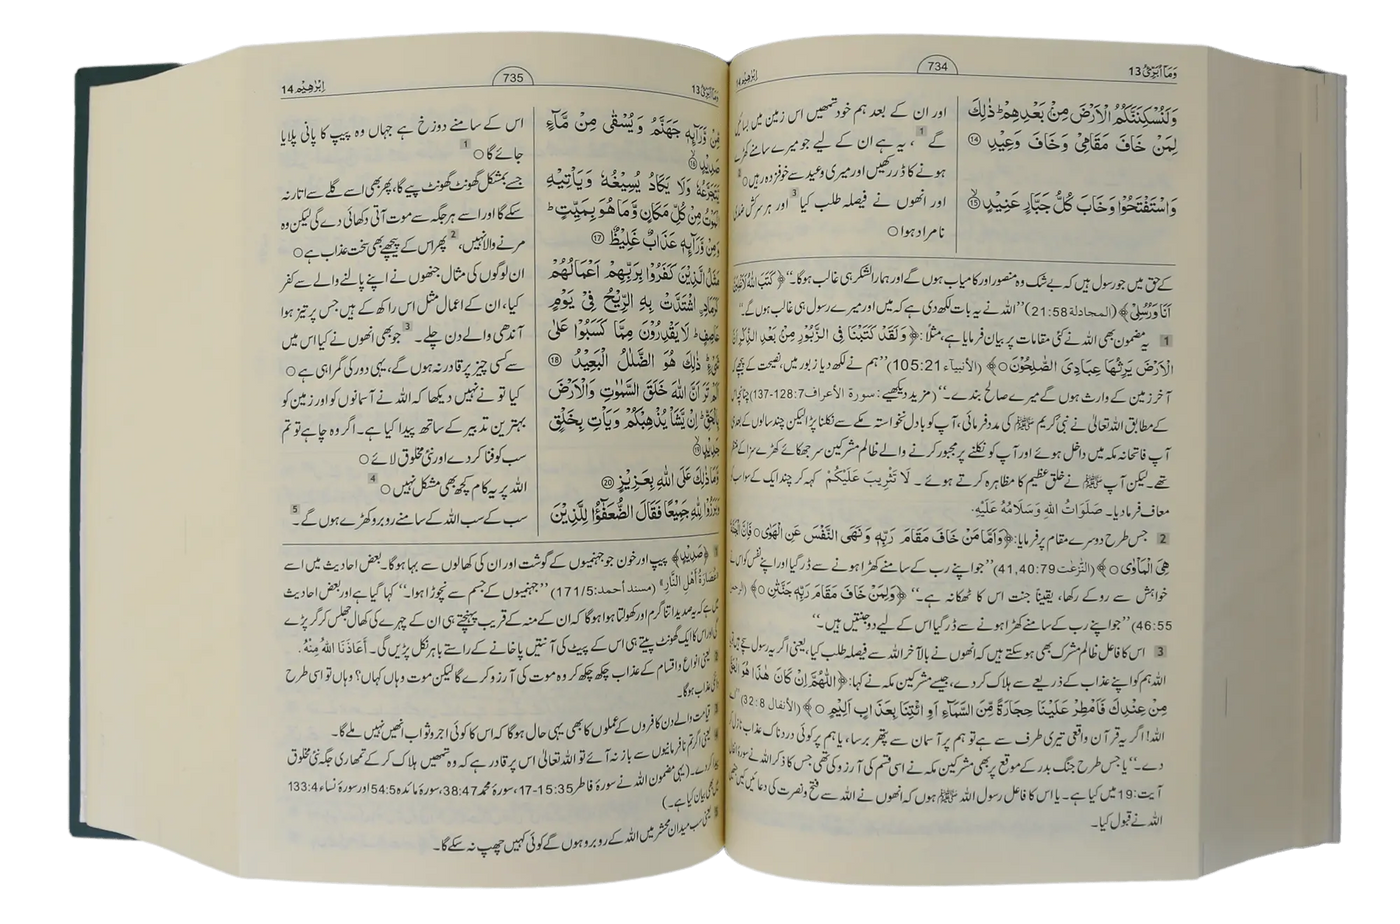 وَمَآ اُبَرِّئُ 13
734
اِبْرٰهِيْم 14
وَلَنُسْكِنَنَّكُمُ الْاَرْضَ مِنْۢ بَعْدِهِمْ ؕ ذٰلِكَ
لِمَنْ خَافَ مَقَامِيْ وَخَافَ وَعِيْدِ ⑭
وَاسْتَفْتَحُوْا وَخَابَ كُلُّ جَبَّارٍ عَنِيْدٍ ⑮
اور ان کے بعد ہم خود تمھیں اس زمین میں بسائیں
گے 1، یہ ہے ان کے لیے جو میرے سامنے کھڑے
ہونے کا ڈر رکھیں اور میری وعید سے خوفزدہ رہیں ○ 2
اور انھوں نے فیصلہ طلب کیا 3 اور ہر سرکش ضدی
نامراد ہوا ○
کے حق میں جو رسول ہیں کہ بے شک وہ منصور اور کامیاب ہوں گے اور ہمارا لشکر ہی غالب ہوگا۔‘‘ ﴿كَتَبَ اللّٰهُ لَاَغْلِبَنَّ
اَنَا وَرُسُلِيْ﴾ (المجادلة 21:58) ’’اللہ نے یہ بات لکھ دی ہے کہ میں اور میرے رسول ہی غالب ہوں گے۔‘‘
1 یہ مضمون بھی اللہ نے کئی مقامات پر بیان فرمایا ہے، مثلاً: ﴿وَلَقَدْ كَتَبْنَا فِى الزَّبُوْرِ مِنْۢ بَعْدِ الذِّكْرِ اَنَّ
الْاَرْضَ يَرِثُهَا عِبَادِيَ الصّٰلِحُوْنَ○﴾ (الأنبياء 105:21) ’’ہم نے لکھ دیا زبور میں، نصیحت کے پیچھے کہ
آخر زمین کے وارث ہوں گے میرے صالح بندے۔‘‘ (مزید دیکھیے: سورة الأعراف 7:128-137) چنانچہ اس
کے مطابق اللہ تعالیٰ نے نبی کریم ﷺ کی مدد فرمائی، آپ کو بادل نخواستہ مکے سے نکلنا پڑا لیکن چند سالوں کے بعد ہی
آپ فاتحانہ مکہ میں داخل ہوئے اور آپ کو نکلنے پر مجبور کرنے والے ظالم مشرکین سر جھکائے کھڑے سزا کے منتظر
تھے۔ لیکن آپ ﷺ نے خلق عظیم کا مظاہرہ کرتے ہوئے۔ لَا تَثْرِيبَ عَلَيْكُمْ کہہ کر چند ایک کے سوا سب کو
معاف فرما دیا۔ صَلَوَاتُ اللّٰهِ وَسَلَامُهُ عَلَيْهِ.
2 جس طرح دوسرے مقام پر فرمایا: ﴿وَاَمَّا مَنْ خَافَ مَقَامَ رَبِّهٖ وَنَهَى النَّفْسَ عَنِ الْهَوٰى○ فَاِنَّ الْجَنَّةَ
هِيَ الْمَاْوٰى○﴾ (النّٰزعٰت 41,40:79) ’’جو اپنے رب کے سامنے کھڑا ہونے سے ڈر گیا اور اپنے نفس کو اس نے
خواہش سے روکے رکھا، یقیناً جنت اس کا ٹھکانہ ہے۔‘‘ ﴿وَلِمَنْ خَافَ مَقَامَ رَبِّهٖ جَنَّتٰنِ○﴾ (الرحمن
46:55) ’’جو اپنے رب کے سامنے کھڑا ہونے سے ڈر گیا اس کے لیے دو جنتیں ہیں۔‘‘
3 اس کا فاعل ظالم مشرک بھی ہو سکتے ہیں کہ انھوں نے بالآخر اللہ سے فیصلہ طلب کیا، یعنی اگر یہ رسول سچے ہیں تو
اللہ ہم کو اپنے عذاب کے ذریعے سے ہلاک کر دے، جیسے مشرکین مکہ نے کہا: ﴿اللّٰهُمَّ اِنْ كَانَ هٰذَا هُوَ الْحَقَّ
مِنْ عِنْدِكَ فَاَمْطِرْ عَلَيْنَا حِجَارَةً مِّنَ السَّمَآءِ اَوِ ائْتِنَا بِعَذَابٍ اَلِيْمٍ○﴾ (الأنفال 32:8) ’’اے
اللہ! اگر یہ قرآن واقعی تیری طرف سے ہے تو ہم پر آسمان سے پتھر برسا، یا ہم پر کوئی دردناک عذاب نازل کر
دے۔‘‘ یا جس طرح جنگ بدر کے موقع پر بھی مشرکین مکہ نے اسی قسم کی آرزو کی تھی جس کا ذکر اللہ نے سورۂ انفال
آیت: 19 میں کیا ہے۔ یا اس کا فاعل رسول اللہ ﷺ ہوں کہ انھوں نے اللہ سے فتح و نصرت کی دعائیں کیں جنھیں
اللہ نے قبول کیا۔
وَمَآ اُبَرِّئُ 13
735
اِبْرٰهِيْم 14
مِّنْ وَّرَآئِهٖ جَهَنَّمُ وَيُسْقٰى مِنْ مَّآءٍ
صَدِيْدٍ ⑯
يَّتَجَرَّعُهٗ وَلَا يَكَادُ يُسِيْغُهٗ وَيَاْتِيْهِ
الْمَوْتُ مِنْ كُلِّ مَكَانٍ وَّمَا هُوَ بِمَيِّتٍ ؕ
وَمِنْ وَّرَآئِهٖ عَذَابٌ غَلِيْظٌ ⑰
مَثَلُ الَّذِيْنَ كَفَرُوْا بِرَبِّهِمْ اَعْمَالُهُمْ
كَرَمَادِ ِۨاشْتَدَّتْ بِهِ الرِّيْحُ فِيْ يَوْمٍ
عَاصِفٍ ؕ لَا يَقْدِرُوْنَ مِمَّا كَسَبُوْا عَلٰى
شَيْءٍ ؕ ذٰلِكَ هُوَ الضَّلٰلُ الْبَعِيْدُ ⑱
اَلَمْ تَرَ اَنَّ اللّٰهَ خَلَقَ السَّمٰوٰتِ وَالْاَرْضَ
بِالْحَقِّ ؕ اِنْ يَّشَاْ يُذْهِبْكُمْ وَيَاْتِ بِخَلْقٍ
جَدِيْدٍ ⑲
وَّمَا ذٰلِكَ عَلَى اللّٰهِ بِعَزِيْزٍ ⑳
وَبَرَزُوْا لِلّٰهِ جَمِيْعًا فَقَالَ الضُّعَفٰٓؤُا لِلَّذِيْنَ
اس کے سامنے دوزخ ہے جہاں وہ پیپ کا پانی پلایا
جائے گا ○ 1
جسے بمشکل گھونٹ گھونٹ پیے گا، پھر بھی اسے گلے سے اتار نہ
سکے گا اور اسے ہر جگہ سے موت آتی دکھائی دے گی لیکن وہ
مرنے والا نہیں، 2 پھر اس کے پیچھے بھی سخت عذاب ہے ○
ان لوگوں کی مثال جنھوں نے اپنے پالنے والے سے کفر
کیا، ان کے اعمال مثل اس راکھ کے ہیں جس پر تیز ہوا
آندھی والے دن چلے۔ 3 جو بھی انھوں نے کیا اس میں
سے کسی چیز پر قادر نہ ہوں گے، یہی دور کی گمراہی ہے ○
کیا تو نے نہیں دیکھا کہ اللہ نے آسمانوں کو اور زمین کو
بہترین تدبیر کے ساتھ پیدا کیا ہے۔ اگر وہ چاہے تو تم
سب کو فنا کر دے اور نئی مخلوق لائے ○
اللہ پر یہ کام کچھ بھی مشکل نہیں ○ 4
سب کے سب اللہ کے سامنے روبرو کھڑے ہوں گے۔ 5
1 ﴿صَدِيْدٍ﴾ پیپ اور خون جو جہنمیوں کے گوشت اور ان کی کھالوں سے بہا ہوگا۔ بعض احادیث میں اسے
عُصَارَةُ أَهْلِ النَّارِ (مسند أحمد: 171/5) ’’جہنمیوں کے جسم سے نچوڑا ہوا۔‘‘ کہا گیا ہے اور بعض احادیث
میں ہے کہ یہ صدید اتنا گرم اور کھولتا ہوا ہوگا کہ ان کے منہ کے قریب پہنچتے ہی ان کے چہرے کی کھال جھلس کر گر پڑے
گی اور اس کا ایک گھونٹ پیتے ہی اس کے پیٹ کی آنتیں پاخانے کے راستے باہر نکل پڑیں گی۔ أَعَاذَنَا اللّٰهُ مِنْهُ.
یعنی انواع و اقسام کے عذاب چکھ چکھ کر وہ موت کی آرزو کرے گا لیکن موت وہاں کہاں؟ وہاں تو اسی طرح
دائمی عذاب ہوگا۔
قیامت والے دن کافروں کے عملوں کا بھی یہی حال ہوگا کہ اس کا کوئی اجر و ثواب انھیں نہیں ملے گا۔
یعنی اگر تم نافرمانیوں سے باز نہ آئے تو اللہ تعالیٰ اس پر قادر ہے کہ وہ تمھیں ہلاک کر کے تمھاری جگہ نئی مخلوق
پیدا کر دے۔ (یہی مضمون اللہ نے سورۂ فاطر 35:15-17، سورۂ محمد 38:47، سورۂ مائدہ 54:5 اور سورۂ نساء 133:4
میں بھی بیان کیا ہے۔)
یعنی سب میدان محشر میں اللہ کے روبرو ہوں گے کوئی کہیں چھپ نہ سکے گا۔